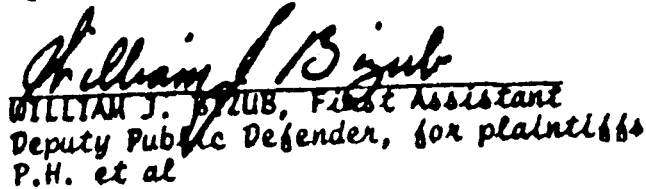 William J Bizub
WILLIAM J. BIZUB, First Assistant
Deputy Public Defender, for plaintiffs
P.H. et al